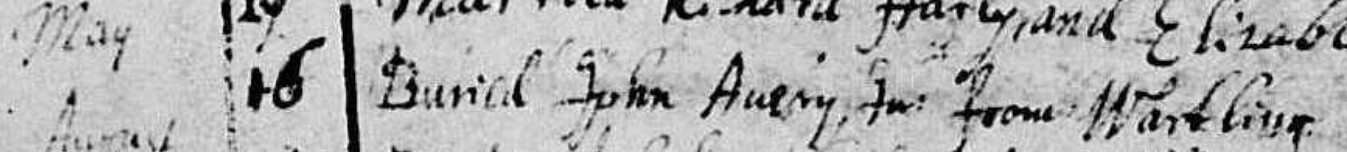 May 19 Married Richard Harly, and Elizab
16 Buried John Auery, Jur from Wartling
August